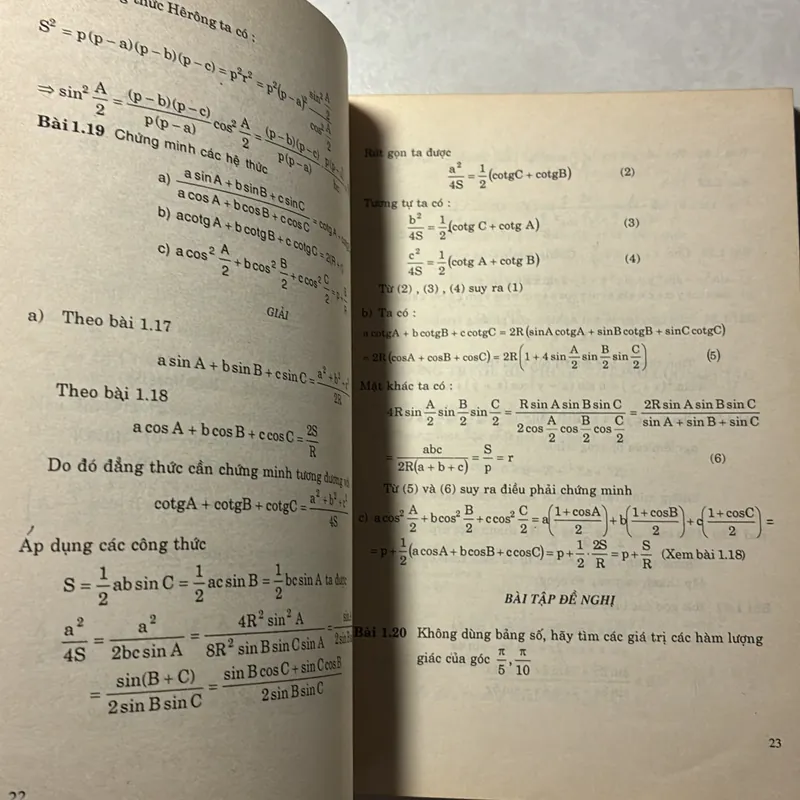 thức Hêrông ta có :
S² = p(p – a)(p – b)(p – c) = p²r² = p²(p – a)² sin² A/2 / cos² A/2
⇒ sin² A/2 = (p – b)(p – c) / p(p – a) cos² A/2 = (p – b)(p – c) / p(p – a)
Bài 1.19 Chứng minh các hệ thức
a) a sin A + b sin B + c sin C / a cos A + b cos B + c cos C = cotg A +
b) acotg A + b cotg B + c cotg C = 2(R +
c) a cos² A/2 + b cos² B/2 + c cos² C/2 = p +
GIẢI
a) Theo bài 1.17
a sin A + b sin B + c sin C = a² + b² + c² / 2R
Theo bài 1.18
a cos A + b cos B + c cos C = 2S/R
Do đó đẳng thức cần chứng minh tương đương với
cotg A + cotg B + cotg C = a² + b² + c² / 4S
Áp dụng các công thức
S = 1/2 ab sin C = 1/2 ac sin B = 1/2 bc sin A ta được
a²/4S = a² / 2bc sin A = 4R² sin² A / 8R² sin B sin C sin A =
= sin(B + C) / 2 sin B sin C = sin B cos C + sin C cos B / 2 sin B sin C
22
Rút gọn ta được
a²/4S = 1/2 (cotgC + cotgB) (2)
Tương tự ta có :
b²/4S = 1/2 (cotg C + cotg A) (3)
c²/4S = 1/2 (cotg A + cotg B) (4)
Từ (2) , (3) , (4) suy ra (1)
b) Ta có :
a cotgA + b cotgB + c cotgC = 2R (sinA cotgA + sinB cotgB + sinC cotgC)
= 2R (cosA + cosB + cosC) = 2R (1 + 4 sin A/2 sin B/2 sin C/2) (5)
Mặt khác ta có :
4R sin A/2 sin B/2 sin C/2 = R sin A sin B sin C / 2 cos A/2 cos B/2 cos C/2 = 2R sin A sin B sin C / sin A + sin B + sin C
= abc / 2R(a + b + c) = S/p = r (6)
Từ (5) và (6) suy ra điều phải chứng minh
c) a cos² A/2 + b cos² B/2 + c cos² C/2 = a(1 + cosA / 2) + b(1 + cosB / 2) + c(1 + cosC / 2) =
= p + 1/2 (a cosA + b cosB + c cosC) = p + 1/2 · 2S/R = p + S/R (Xem bài 1.18)
BÀI TẬP ĐỀ NGHỊ
Bài 1.20 Không dùng bảng số, hãy tìm các giá trị các hàm lượng
giác của góc π/5 , π/10
23